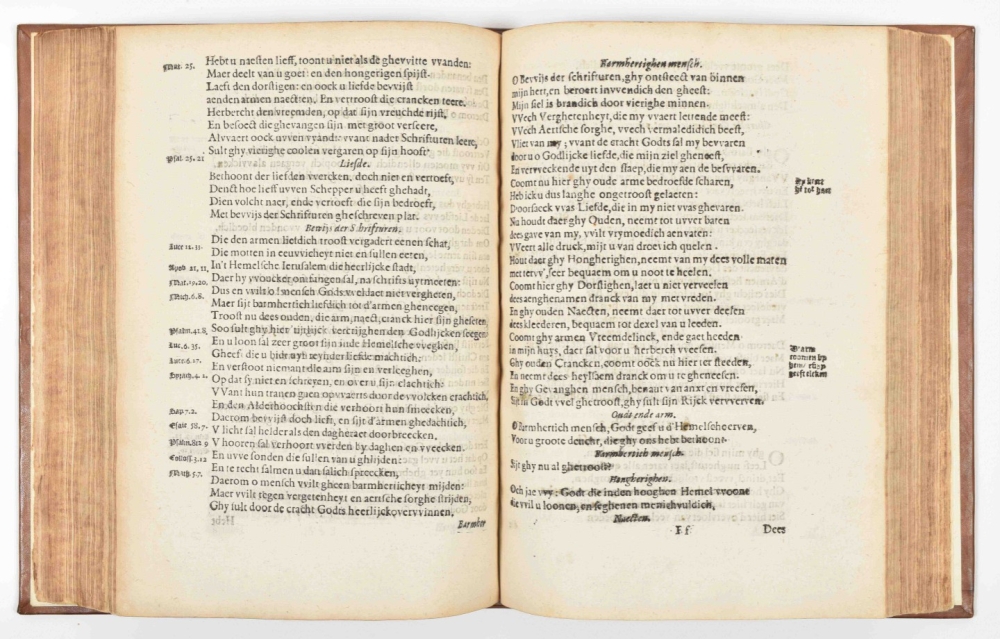 Mat. 25. Hebt u naesten lieff, toont u niet als de ghevvitte vvanden:
Maer deelt van u goet: en den hongerigen spijst.
Laeft den dorstigen: en oock u liefde bevvijst
aenden armen naesten. En vertroost die crancken teere.
Herbercht den vremden, op dat sijn vreuchde rijst,
En besoect die ghevangen sijn met groot verseere,
Alvvaert oock uvven vyandt: vvant nader Schrifturen leere,
Psal. 25. 21 Sult ghy vierighe coolen vergaren op sijn hooft
Liefde.
Bethoont der liefden vvercken, doch niet en vertoeft,
Denct hoe lieff uvven Schepper u heeft ghehadt,
Dien volcht naer, ende vertroest die sijn bedroeft,
Met bevvijs der Schrifturen gheschreven plat.
Bewijs der Schrifturen.
Die den armen lietdich troost vergadert eenen schat,
Luce 12. 33. Die motten in eeuvvicheyt niet en sullen eeten,
Apob. 21, 11. In't Hemelsche Ierusalem die heerlijcke stadt,
Mat. 19, 20. Daer hy vvoucker ontfangen sal, na schrifts uytmeeten:
Math. 6. 8. Dus en vvilt o mensch Godts vveldaet niet vergheten,
Maer sijt barmhertich liefdich tot d'armen gheneegen,
Troost nu dees ouden, die arm, naect, cranck hier sijn gheseten
Psalm. 41. 8, Soo sult ghy hier tijtlijck vercrijghen den Godlijcken seegen
Luc. 6. 35. En u loon sal zeer groot sijn inde Hemelsche vveghen,
Luce. 6. 17. Gheeft die u bidt uyt reynder liefde machtich:
En verstoot niemant die arm sijn en verleeghen,
Syrach. 4. 1. Op dat sy niet en schreyen, en over u sijn clachtich:
VVant hun tranen gaen opvvaerts door de vvolcken crachtich,
En den Alderhoochsten die verhoort hun smeecken,
Sap. 7. 2. Daerom bevvijst doch lieft, en sijt d'armen ghedachtich,
Esaie 58. 7. V licht sal helder als den dagheraet doorbreecken.
Psalm. 82 9 V hooren sal verhoort vverden by daghen en vveecken.
Colloss. 3. 12 En uvve sonden die sullen van u ghlijden:
Math. 5. 7. En te recht salmen u dan salich spreecken,
Daerom o mensch vvilt gheen barmherticheyt mijden:
Maer vvilt tegen vergetenheyt en aersche sorghe strijden,
Ghy sult door de cracht Godts heerlijck overvvinnen,
Barmher
Barmhertighen mensch.
O Bevvijs der schrifturen, ghy ontsteect van binnen
mijn hert, en beroert invvendich den gheest:
Mijn siel is brandich door vierighe minnen.
VVech Verghetenheyt, die my vvaert lettende meest:
VVech Aertsche sorghe, vvech vermaledidich beest,
Vliet van my: vvant de cracht Godts sal my bevvaren
door u o Godlijcke liefde, die mijn ziel gheneest,
En vervveckende uyt den slaep, die my aen de besvvaren.
Coomt nu hier ghy oude arme bedroefde scharen,
Heb ick u dus langhe ongetroost gelaeten:
Doorsteeck vvas Liefde, die in my niet vvas ghevaren.
Nu houdt daer ghy Ouden, neemt tot uvver baten
dees gave van my, vvilt vrymoedich aenvaten:
VVeert alle druck, mijt u van droevich quelen.
Hout daer ghy Hongherighen, neemt van my dees volle maten
met tervv', seer bequaem om u noot te heelen.
Coomt hier ghy Dorstighen, laet u niet verveelen
dees aenghenamen dranck van my met vreden.
En ghy ouden Naecten, neemt daer tot uvver deelen
dees kleederen, bequaem tot dexel van u leeden.
Coomt ghy armen Vreemdelinck, ende gaet heeden
in mijn huys, daer sal voor u herberch vveesen.
Ghy ouden Crancken, coomt oock nu hier ter steeden,
En neemt dees heylsem dranck om u te gheneesen.
En ghy Gevanghen mensch, benaut van anxt en vreesen,
Sijt in Godt vvel ghetroost, ghy sult sijn Rijck vervverven.
Oude ende arm.
O barmhertich mensch, Godt geef u d'Hemelsche erven,
Voor u groote deucht, die ghy ons hebt bethoont.
Barmhertich mensch.
Sijt ghy nu al ghetroost?
Hongherighen.
Och jae vvy: Godt die inden hooghen Hemel vvoont
die vvil u loonen, en seghenen menichvuldich,
Naecten.
F f Dees